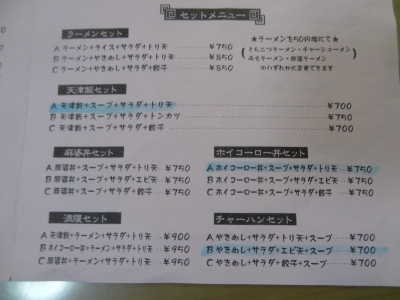 セットメニュー
ラーメンセット
A ラーメン+ライス+サラダ+トリ天 ¥750
B ラーメン+やきめし+サラダ+トリ天 ¥850
C ラーメン+やきめし+サラダ+餃子 ¥850
★ラーメンを50円増にて★
とんこつラーメン・チャーシューメン
みそラーメン・麻婆ラーメン
のいずれかに変更できます
天津飯セット
A 天津飯+スープ+サラダ+トリ天 ¥700
B 天津飯+スープ+サラダ+トンカツ ¥750
C 天津飯+スープ+サラダ+餃子 ¥700
麻婆丼セット
A 麻婆丼+スープ+サラダ+トリ天 ¥750
B 麻婆丼+スープ+サラダ+エビ天 ¥750
C 麻婆丼+スープ+サラダ+餃子 ¥750
ホイコーロー丼セット
A ホイコーロー丼+スープ+サラダ+トリ天 ¥750
B ホイコーロー丼+スープ+サラダ+エビ天 ¥750
C ホイコーロー丼+スープ+サラダ+餃子 ¥750
満腹セット
A 天津飯+ラーメン+サラダ+トリ天 ¥900
B ホイコーロー丼+ラーメン+サラダ+トリ天 ¥950
C 麻婆丼+ラーメン+サラダ+トリ天 ¥950
チャーハンセット
A やきめし+サラダ+トリ天+スープ ¥700
B やきめし+サラダ+エビ天+スープ ¥700
C やきめし+サラダ+餃子+スープ ¥700